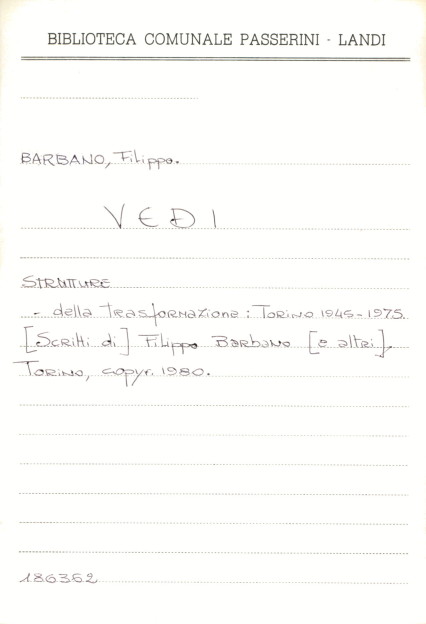 BIBLIOTECA COMUNALE PASSERINI - LANDI
BARBANO, Filippo.
VEDI
STRUTTURE
- della trasformazione : Torino 1945-1975.
[Scritti di] Filippo Barbano [e altri].
Torino, copyr. 1980.
186362